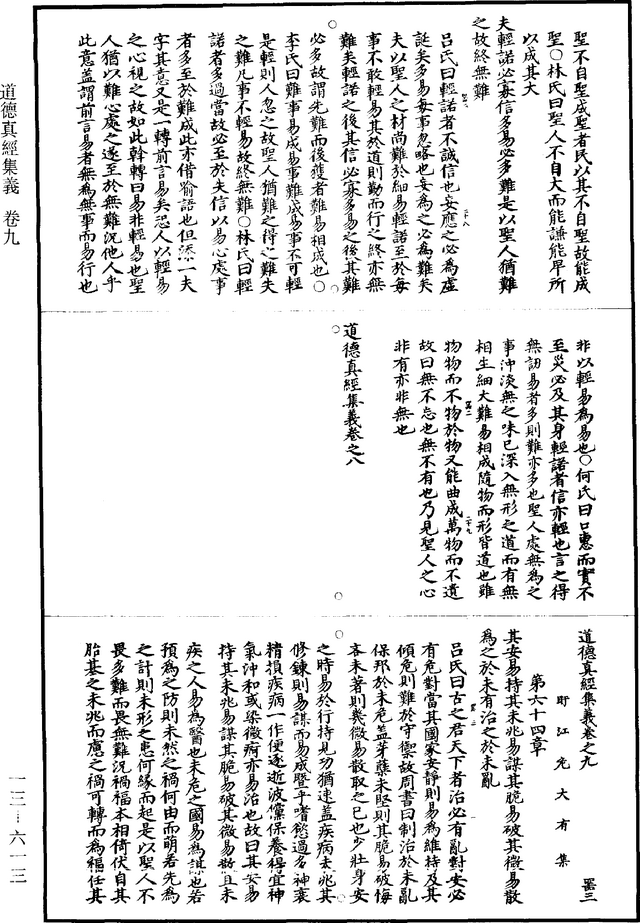 道德真經集義 卷九
聖不自聖成聖者民以其不自聖故能成
聖○林氏曰聖人不自大而能謙能卑所
以成其大
夫輕諾必寡信多易必多難是以聖人猶難
之故終無難
呂氏曰輕諾者不誠信也妄應之必為虛
誕矣多易每事忽略也妄為之必為難矣
夫以聖人之材尚難於細易輕諾至於每
事不敢輕易其於道則勤而行之終亦無
難矣輕諾之後其信必寡多易之後其難
必多故謂先難而後獲者難易相成也○
李氏曰難事易成易事難成易事不可輕
是輕則人忽之故聖人猶難之得之難失
之難凡事不輕易故終無難○林氏曰輕
諾者多過當故必至於失信以易心處事
者多至於難成此亦借喻語也但添一夫
字其意又是一轉前言易矣恐人以輕易
之心視之故如此斡轉曰易非輕易也聖
人猶以難心處之遂至於無難況他人乎
此意蓋謂前言易者無為無事而易行也
非以輕易為易也○何氏曰口惠而實不
至災必及其身輕諾者信亦輕也言之得
無訒易者多則難亦多也聖人處無為之
事沖淡無之味已深入無形之道而有無
相生細大難易相成隨物而形皆道也雖
物物而不物於物又能曲成萬物而不遺
故曰無不忘也無不有也乃見聖人之心
非有亦非無也
道德真經集義卷之八
道德真經集義卷之九
盱江危大有集
第六十四章
其安易持其未兆易謀其脆易破其微易散
為之於未有治之於未亂
呂氏曰古之君天下者治必有亂對安必
有危對當其國家安靜則易為維持及其
傾危則難於守禦故周書曰制治於未亂
保邦於未危蓋芽蘖未堅則其脆易破悔
吝未著則幾微易散取之己也少壯身安
之時易於行持見功猶速蓋疾病去兆其
修鍊則易謀而易成暨乎嗜慾過多神衰
精損疾病一作便逐逝波儻保養得宜神
氣沖和或染微痾亦易治也故曰其安易
持其未兆易謀其脆易破其微易散且未
疾之人易為醫也未危之國易為謀也若
預為之防則未然之禍何由而萌若先為
之計則未形之患何緣而起是以聖人不
畏多難而畏無難況禍福本相倚伏自其
胎甚之未兆而慮之禍可轉而為福任其
一三－六一三